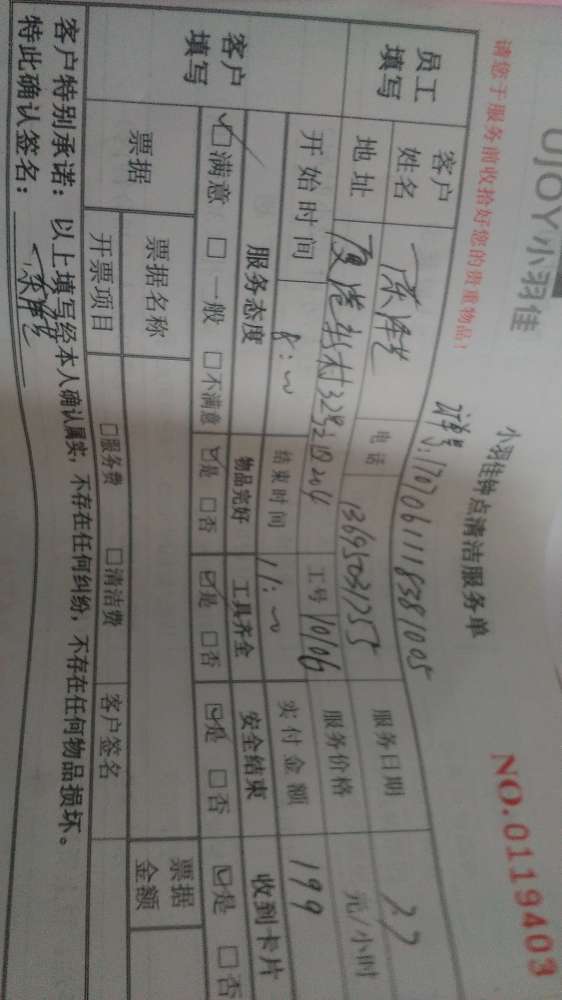 UJOY小羽佳
请您于服务前收拾好您的贵重物品！
小羽佳钟点清洁服务单 NO.0119403
单号:1707061118381005
员工填写 客户姓名 电话 13695031755 服务日期 27
地址 夏港新村32号之1 201 工号 10106 服务价格 元/小时
开始时间 8:00 结束时间 11:00 实付金额 199
客户填写 服务态度 物品完好 工具齐全 安全结束 收到卡片
☑满意 □一般 □不满意 ☑是 □否 ☑是 □否 ☑是 □否 ☑是 □否
票据 票据名称 票据金额
开票项目 □服务费 □清洁费 客户签名
客户特别承诺：以上填写经本人确认属实，不存在任何纠纷，不存在任何物品损坏。
特此确认签名：